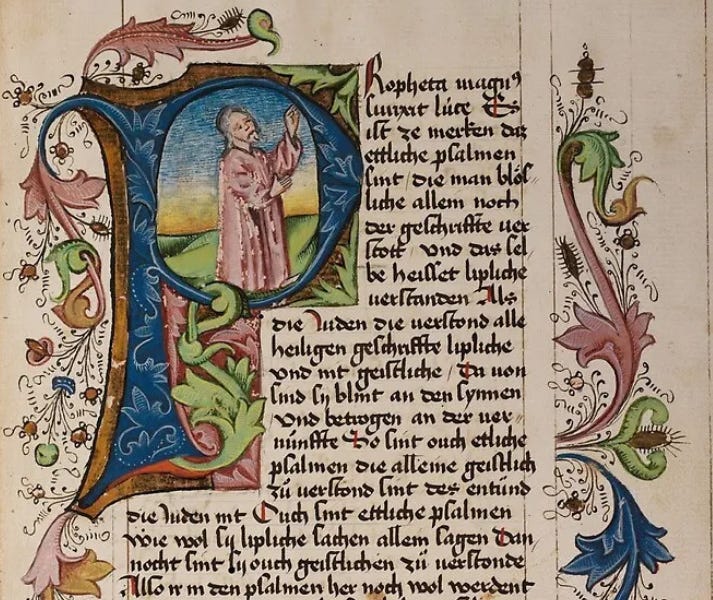 Propheta magnus
surrexit luce Es
ist ze merken daz
ettliche psalmen
sint / die man blos
liche allein noch
der geschrifte ver
stott und das sel
be heisset lipliche
verstanden Als
die Juden die verstond alle
heiligen geschrifte lipliche
und nit geistliche / Da von
sind sy blint an den synnen
und betrogen an der ver
nunffte So sint ouch etliche
psalmen die alleine geistlich
zů verstond sint des entünd
die Juden nit Ouch sint ettliche psalmen
wie wol sy lipliche sachen allein sagen Dan
nocht sint sy ouch geistlichen zů verstonde
Also ir in den psalmen her noch wol werdent